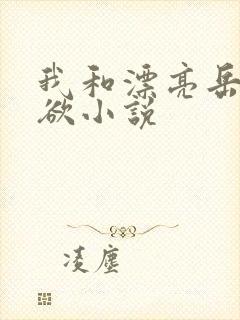 我和漂亮岳
欲小说
凌尘